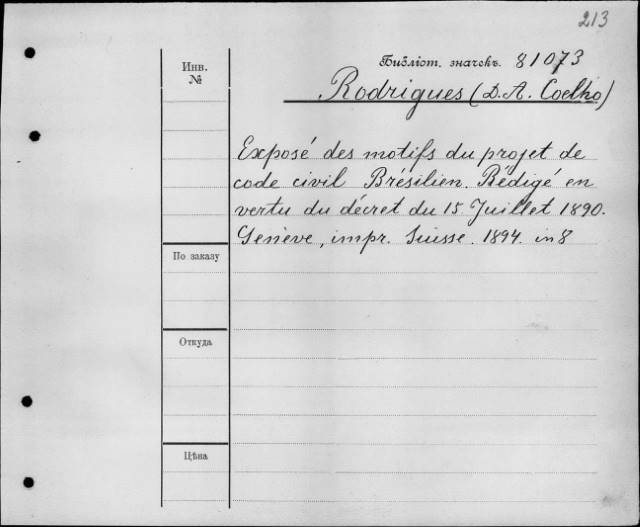 213
Библіот. значекъ. 81073
Инв.
№
Rodrigues (D.A. Coelho)
Exposé des motifs du projet de
code civil Brésilien. Rédigé en
vertu du décret du 15 Juillet 1890.
Genève, impr. Suisse. 1894. in 8
По заказу
Откуда
Цѣна